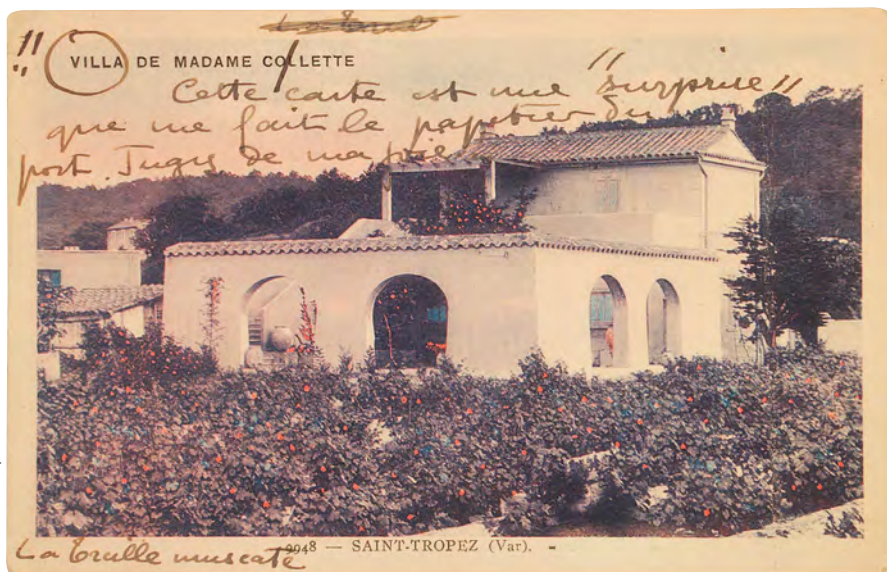 VILLA DE MADAME COLLETTE
Cette carte est une "surprise"
que me fait le papetier du
port. Jugez de ma joie
La Treille muscate
9948 — SAINT-TROPEZ (Var). -